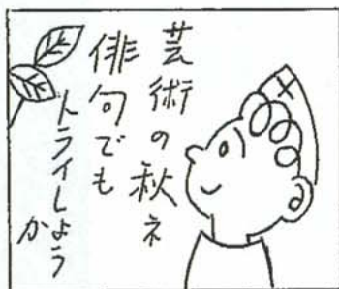 芸術の秋ネ
俳句でも
トライしよう
か